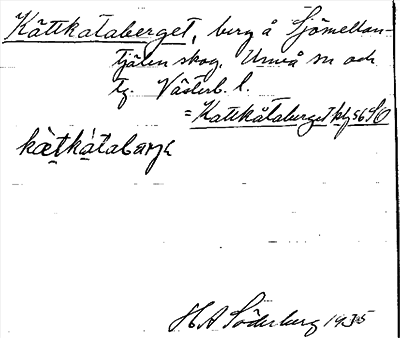 Kättkåtaberget, berg å Sjömellan-
tjälen skog. Umeå sn och
tg. Västerb. l.
= Kattkåtaberget kbl 56 SO
kætkåtabærje
H A Söderberg 1935